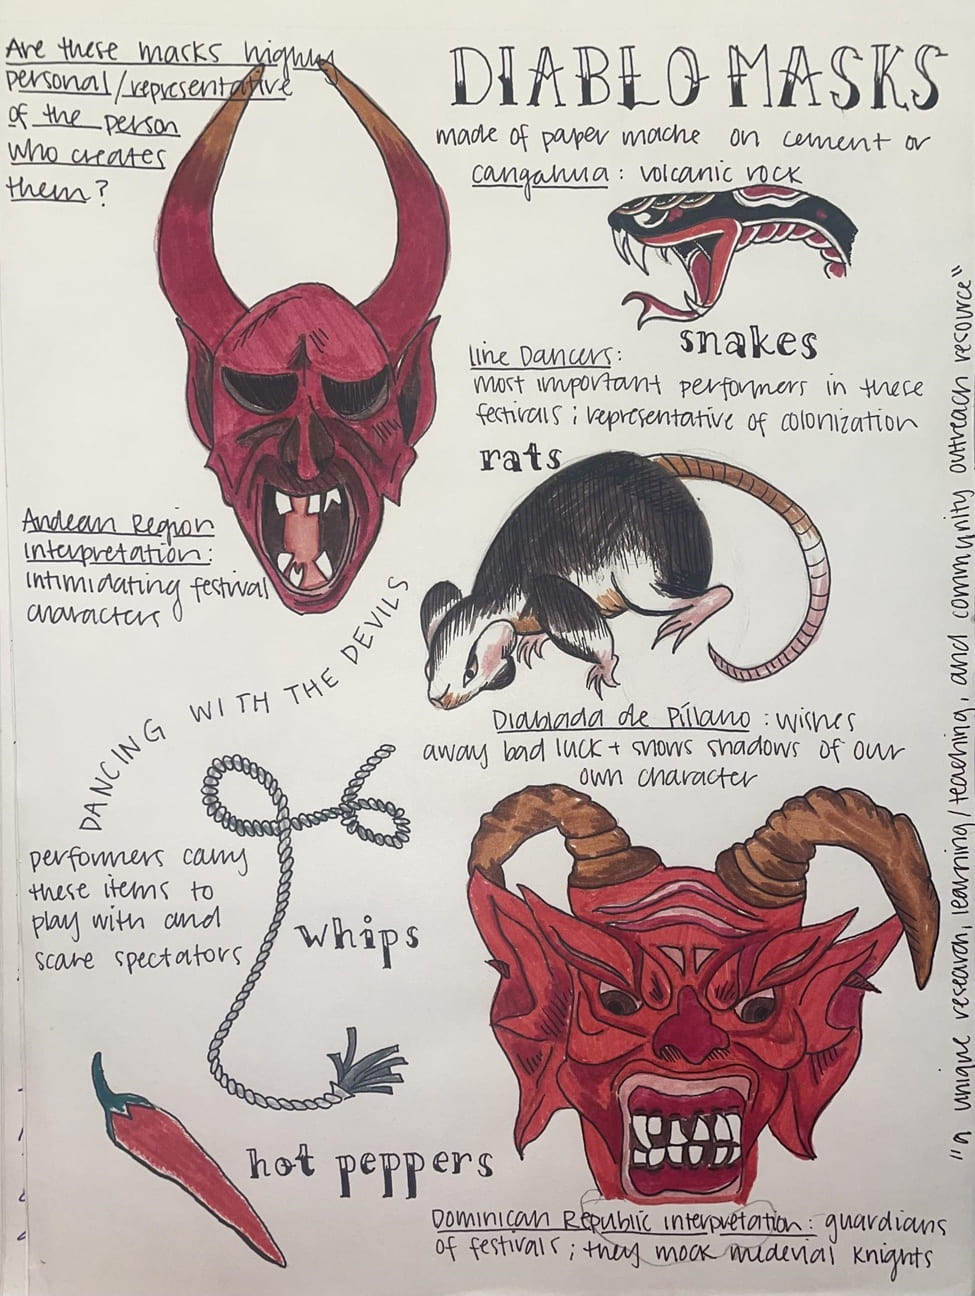 Are these masks highly
personal/representative
of the person
who creates
them?
DIABLO MASKS
made of paper mache on cement or
cangahua: volcanic rock
snakes
Line Dancers:
most important performers in these
festivals; representative of colonization
rats
Andean Region
Interpretation:
intimidating festival
characters
DANCING WITH THE DEVILS
Diablada de Píllano: wishes
away bad luck + shows shadows of our
own character
performers carry
these items to
play with and
scare spectators
whips
hot peppers
Dominican Republic interpretation: guardians
of festivals; they mock medevial knights
"a unique research, learning/teaching, and community outreach resource"